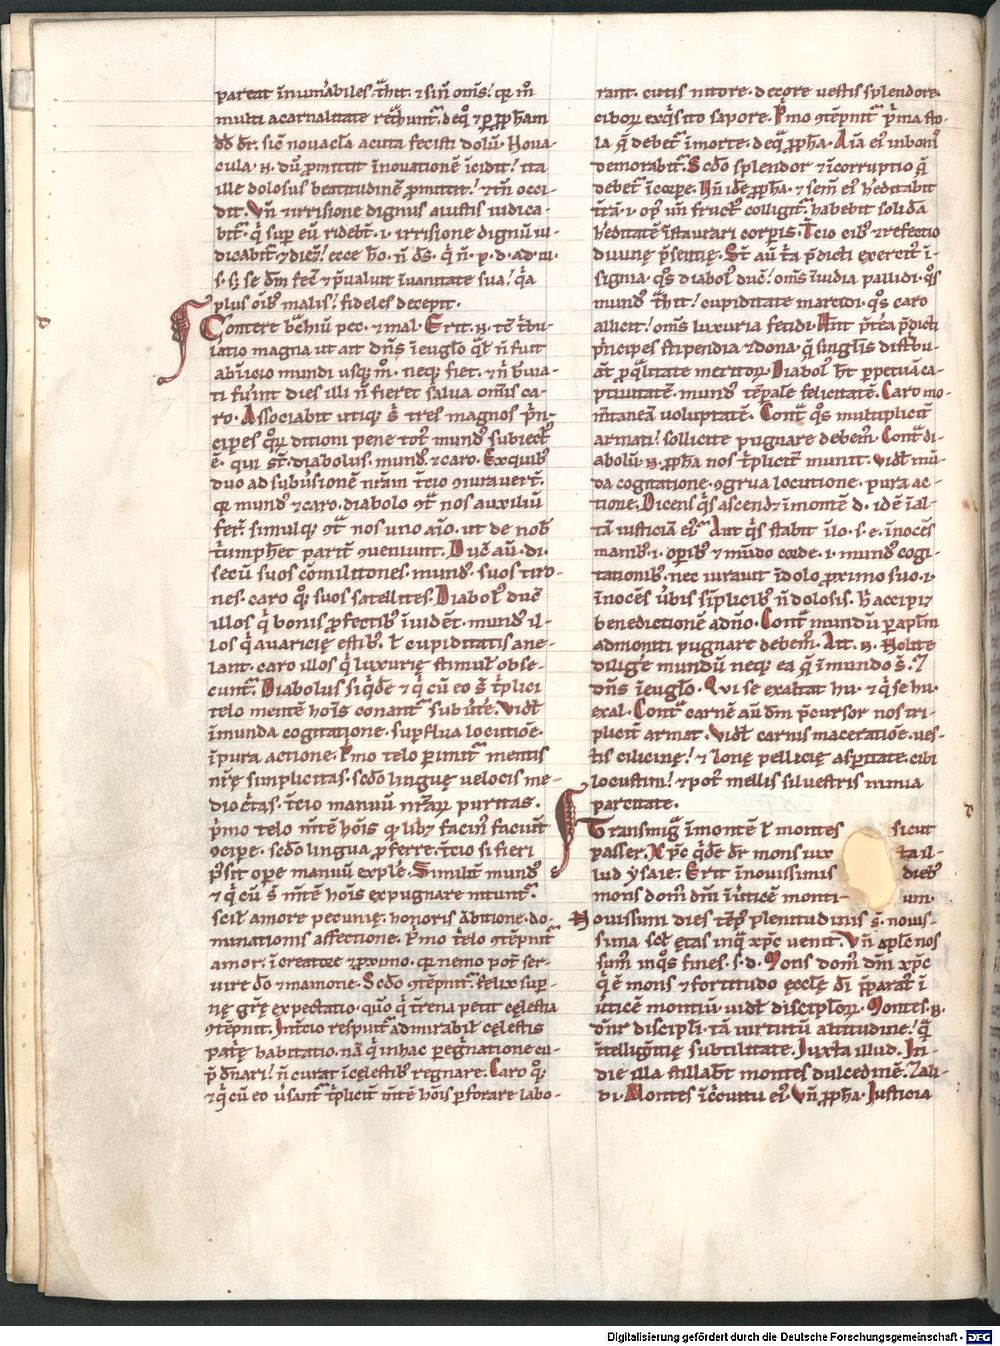 pareat īnumabiles thit. ⁊ sīn om̄s! qꝛ m̄
multi a carnalitate rethunt. deqͦ ⁊ ꝑ ꝓpham
dd dr. sic̄ nouacła acuta fecisti dolū. Noua
cula .n. dū ꝓmittit īnouationē īcidit! ita
ille dolosus beatitudinē ꝓmittit! ⁊ tn̄ occi
dit. Vn̄ ⁊ irrisione dignus a iustis iudica-
bit. q̇ sup eū ridebt. i. irrisione dignū iu-
dicabit ⁊ dicēt! ecce ho. n̄ ds. q̇ n̄. p. d. ad. iu.
s. s; se dm fec̄ ⁊ p̄ualuit īuanitate sua! q̇a
plus oīb malis! fideles decepit.
Contere bchiū pec. ⁊ mal. Erit .n. tc̄ tbu-
latio magna ut ait dn̄s ī euglo q̄l n̄ fuit
ab īicio mundi usq; m̄. neq; fiet. ⁊ n̄ b̄uia-
ti fuīnt dies illi n̄ fieret salua om̄is ca-
ro. Associabit utiq; s tres magnos p̄n-
cipes qͦꝝ ditioni pene totꝰ mundꝰ subiectꝰ
ē. qui st̄. diabolus. mundꝰ. ⁊ caro. Ex quibꝰ
duo ad subūsionē nr̄am tcio ꝯiurauert̄.
qꝛ mundꝰ ⁊ caro. diabolo ꝯt nos auxiliū
fert̄. simulq; ꝯt nos uno aīo. ut de nob̄
tumphet parit̄ ꝯueniunt. Duc̄ au. di.
secū suos cōmilitones. mundꝰ. suos tiro-
nes. caro qͦ; suos satellites. Diabolꝰ duc̄
illos q̇ bonis ꝓfectibꝰ īuidēt. mundꝰ il-
los q̇ auaricię estibꝰ. ł cupiditatis ane-
lant. caro illos q̇ luxurię stimuł obse-
cunt. Diabolus siqd̄e ⁊ q̇ cū eo s̄ tplici
telo mentē hoīs conant subūte. Vidł
īmunda cogitatione. supflua locutiōe.
īpura actione. Pmo telo ꝑimit mentis
nr̄ę simplicitas. scdo linguę uelocis me-
diocitas. tcio manuū nr̄aꝝ puritas.
Pmo telo mtē hoīs qꝛ lib; facinꝰ faciūt
ꝯcipe. scdo lingua ꝓferre. tcio si fieri
p̄sit oꝑe manuū exple. Similit̄ mundꝰ
⁊ q̇ cū s mtē hoīs expugnare nitunt.
scił amore pecunię. honoris ābitione. do-
minationis affectione. Pmo telo ꝯtēpnit
amor. ī creatore ⁊ ꝓximo. qꝛ nemo pot̄ ser-
uire do ⁊ mamone. Scdo ꝯtēpnit. felix sup-
nę gr̄ę expectatio. quō q̇ trena petit cęlestia
ꝯtēpnit. In tcio respuit admirabil cęlestis
patrię habitatio. nā q̇ in hac ꝑegnatione cu-
p̄ dn̄ari! n̄ curat ī cęlestibꝰ regnare. Caro qͦ;
⁊ q̇ cū eo ūsant tplicit̄ mtē hoīs ꝑforare labo-
rant. cutis nitore. decore uestis splendore.
ciboꝝ exqsito sapore. Pmo ꝯtēpnit p̄ma sto-
la q̄ debet ī morte. deq̄ ꝓpha. Aīa eiꝰ in boniꝰ
demorabit. Scdo splendor ⁊ īcorruptio q̄
debet̄ ī corꝑe. Vn̄ idē ꝓpha. ⁊ sem̄ eiꝰ hēditabit
tr̄ā. i. opꝰ un̄ fructꝰ colligit. habebit solidā
hēditatē īstaurari corꝑis. Tcio cibꝰ ⁊ refectio
diuinę p̄sentię. St̄ au t̄a p̄dicti exercit̄ ī-
signia. qͦs diabolꝰ duc̄! om̄s īuidia pallidi. qͦs
mundꝰ thit! cupiditate marcidi. qͦs caro
allicit! om̄s luxuria fetidi. Hn̄t p̄t̄ea p̄dicti
p̄ncipes stipendia ⁊ dona. q̄ singlis distbu-
āt ꝓ q̄litate meritoꝝ. Diabolꝰ ht̄ ꝑpetuā ca-
ptiuitatē. mundꝰ tēpale felicitatē. Caro mo-
m̄taneā uoluptatē. Cont̄ qͦs multiplicit̄
armati! sollicite pugnare debem̄. Cont̄ di-
abolū .n. ꝓpha nos tplicit̄ munit. Vidł mū-
da cogitatione. ꝯgrua locutione. pura ac-
tione. Dicens qs ascendꝫ ī montē d. idē ī al-
tā iusticiā eiꝰ Aut qs stabit īlo. s. e. īnocēs
manibꝰ. i. oꝑibꝰ ⁊ mūdo corde. i. mundꝰ cogi-
tationibꝰ. nec iurauit ī dolo ꝓximo suo. i.
īnocēs ūbis sīplicibꝰ n̄ dolosis. h̄ accipiꝫ
benedictionē adn̄o. Cont̄ mundū ꝑ aplm
admoniti pugnare debem̄. Ait .n. Nolite
diligē mundū neq; ea q̄ ī mundo s̄. ⁊
dn̄s ī euglo. Qui se exaltat hu. ⁊ q̇ se hu.
exal. Cont̄ carnē au dm̄ p̄cursor nos tri-
plicit̄ armat. Vidł carnis maceratiōe. ues-
tis cilicinę! ⁊ zonę pellicię asꝑitate. cibi
locustini! ⁊ potꝰ mellis siluestris nimia
parcitate.
Transmig ī montē ł montes sicut
passer. Xp̄c qdē dr mons iux ta il-
lud ysaie. Erit ī nouissimis diebꝰ
mons domꝰ dni ī ūticē monti- um.
Nouissimi dies tēpꝰ plenitudinis s̄. nouis-
sima scł ętas inq̄ xp̄c uenit. Vn̄ apłc nos
sumꝰ inqͦs fines. s. d. Mons domꝰ dni xp̄c
q̇ ē mons ⁊ fortitudo ęcclę di p̄paratꝰ ī
ūticē montiū. uidł discipłoꝝ. Montes .n.
dn̄r discipli. tā uirtutū altitudine! q̄
ītelligītię subtilitate. Iuxta illud. In
die illa stillabt̄ montes dulcedinē. ⁊ ali-
bi. Montes ī cc̄uitu eiꝰ. Vn̄ ꝓpha. Iusticia
Digitalisierung gefördert durch die Deutsche Forschungsgemeinschaft - DFG